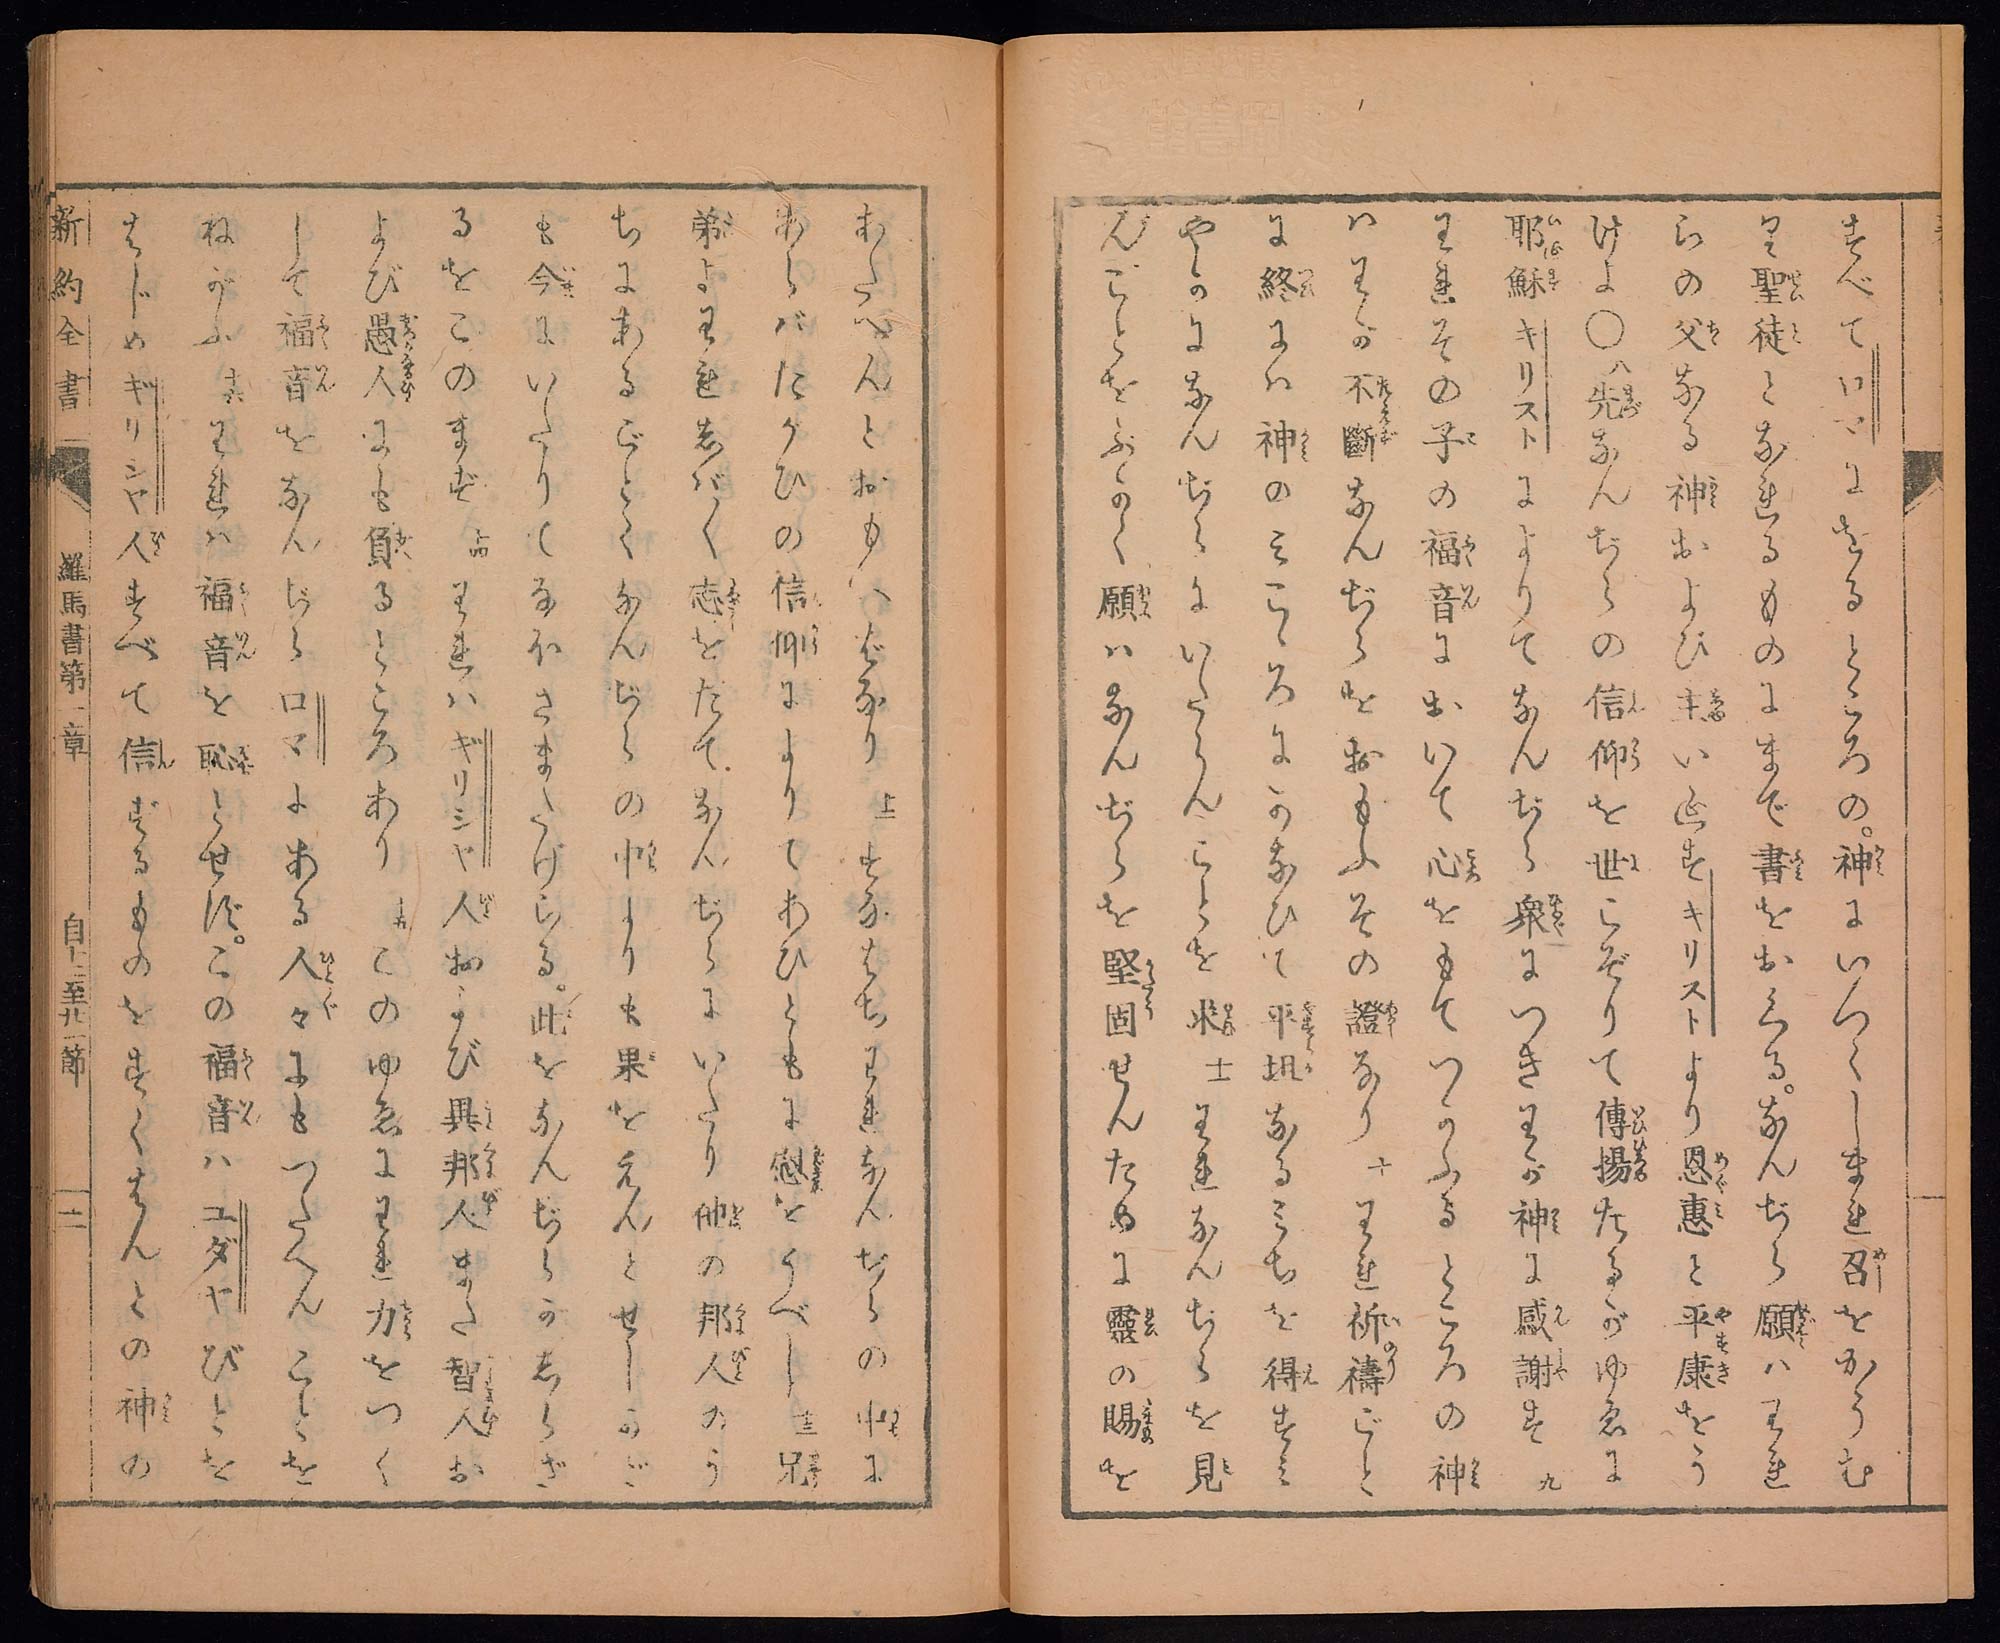 すべてロマにをるところの。神にいつくしまれ召をかうむ
り聖徒となれるものにまで書をおくる。なんぢら願ハわれ
らの父なる神および主いゑすキリストより恩惠と平康をう
けよ〇八先なんぢらの信仰を世こぞりて傳揚たるがゆゑに
耶穌キリストによりてなんぢら衆につきわが神に感謝す 九
われその子の福音において心をもてつかふるところの神
ハわが不斷なんぢらをおもふその證なり 十 われ祈禱ごと
に終にハ神のみこゝろにかなひて平坦なるみちを得すみ
やかになんぢらにいたらんことを求 十一 われなんぢらを見
んことをふかく願ハなんぢらを堅固せんために靈の賜を
あたへんとおもへばなり 十二 すなはちわれなんぢらの中に
あらバたがひの信仰によりてあひともに慰をうべし 十三 兄
弟よわれしバ〳〵志をたてなんぢらにいたり他の邦人のう
ちにあるごとくなんぢらの中よりも果をえんとせしかど
も今にいたりてなほさまたげらる。此をなんぢらがしらざ
るをこのまず 十四 われハギリシヤ人および異邦人また智人お
よび愚人にも負るところあり 十五 このゆゑにわれ力をつく
して福音をなんぢらロマにある人々にもつたへんことを
ねがふ 十六 われハ福音を恥とせず。この福音ハユダヤびとを
はじめギリシヤ人すべて信ずるものをすくはんとの神の
新約全書 羅馬書第一章 自十二至廿一節 二